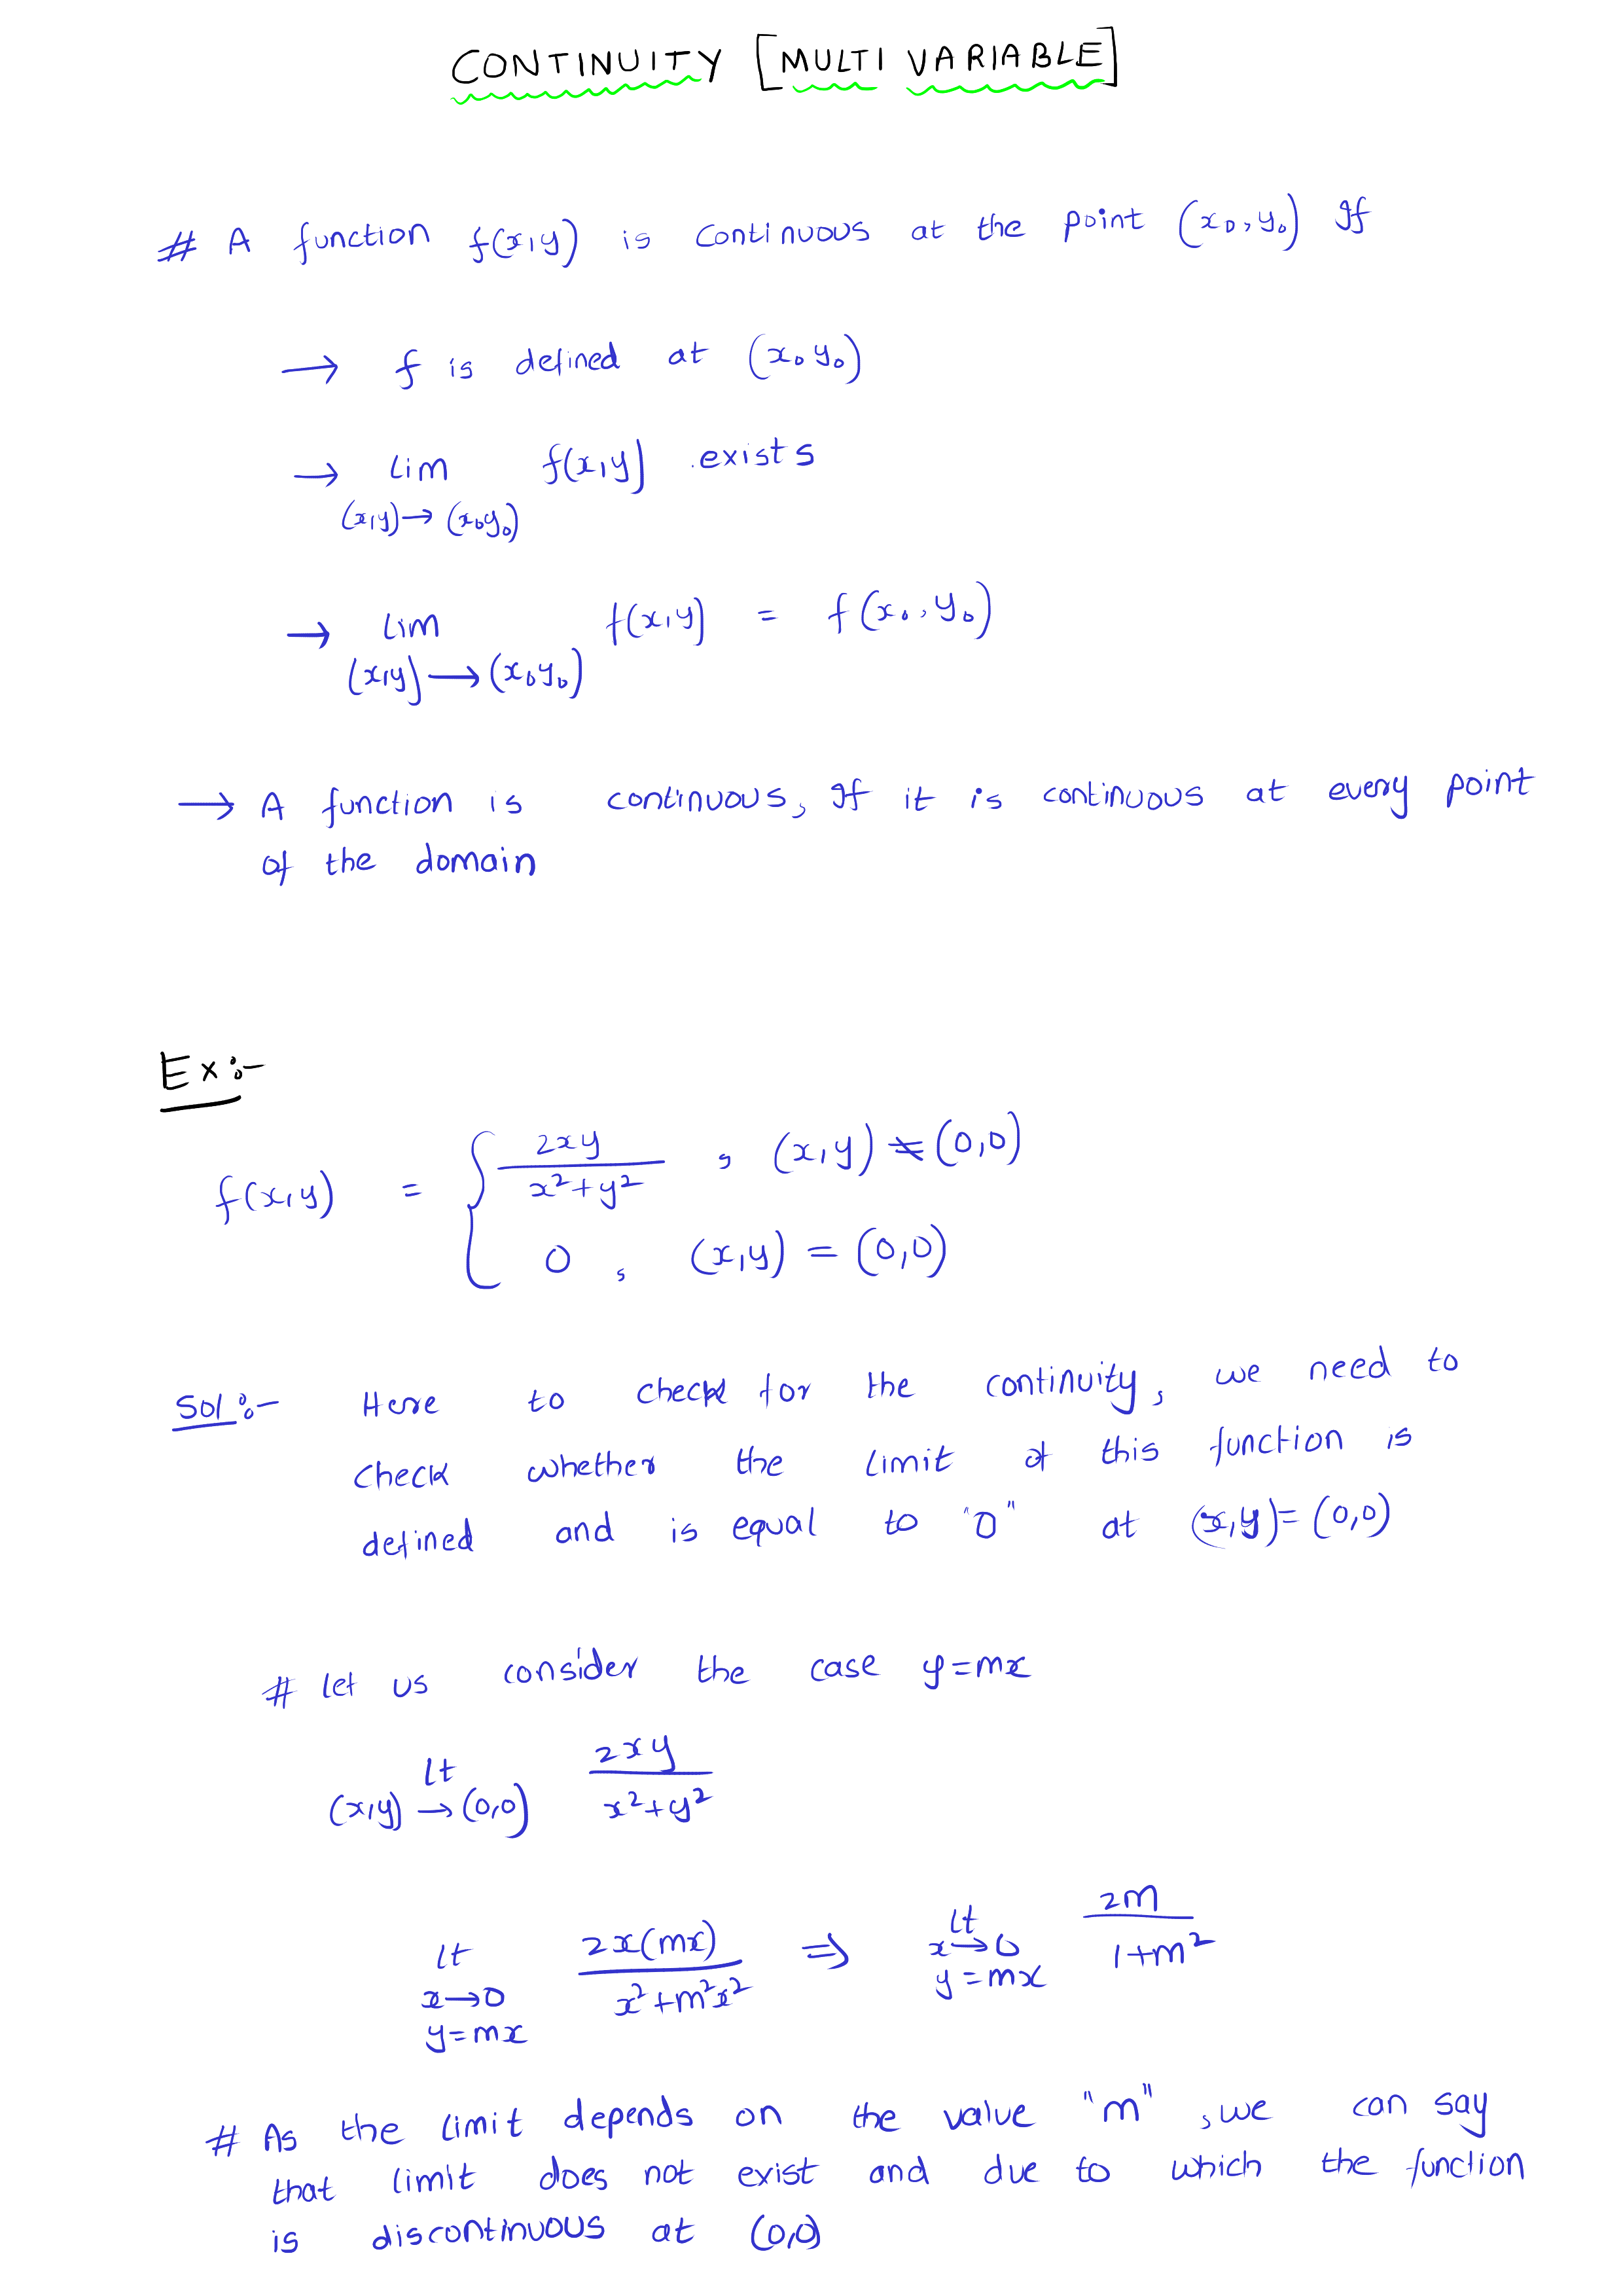 CONTINUITY [MULTI VARIABLE]
# A function f(x,y) is continuous at the point (x₀,y₀) If
→ f is defined at (x₀ y₀)
→ Lim f(x,y) exists
(x,y)→(x₀y₀)
→ Lim f(x,y) = f(x₀,y₀)
(x,y)→(x₀y₀)
→ A function is continuous, If it is continuous at every point
of the domain
Ex:-
f(x,y) = { 2xy / x²+y² , (x,y) ≠ (0,0)
0 , (x,y) = (0,0)
Sol:- Here to check for the continuity, we need to
check whether the limit of this function is
defined and is equal to "0" at (x,y)=(0,0)
# let us consider the case y=mx
lt (x,y)→(0,0) 2xy / x²+y²
lt x→0 y=mx 2x(mx) / x²+m²x² ⇒ lt x→0 y=mx 2m / 1+m²
# As the limit depends on the value "m", we can say
that limit does not exist and due to which the function
is discontinuous at (0,0)